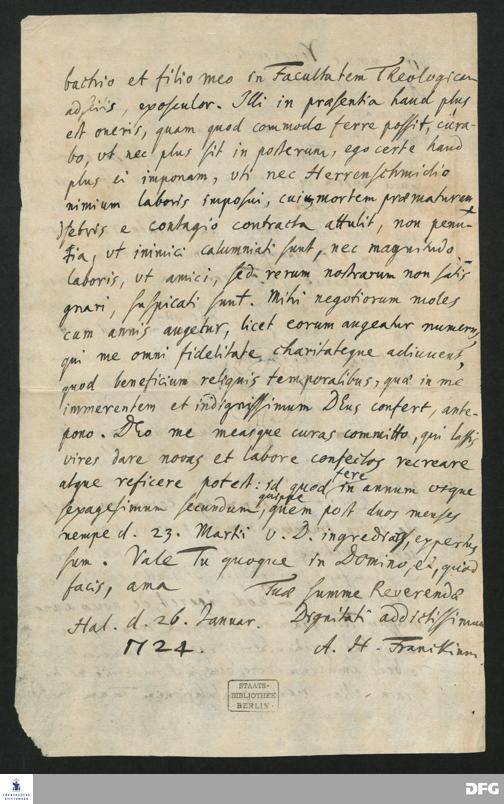 bachio et filio meo in Facultatem Theologicam
adscitis, exposculor. Illi in praesentia haud plus
est oneris, quam quod commode ferre possit, cura-
bo, ut nec plus sit in posterum, ego certe haud
plus ei imponam, uti nec Herrenschmidio
nimium laboris imposui, cui mortem praematuram
febris e contagio contracta attulit, non penu-
ria, ut inimici calumniati sunt, nec magnitudo
laboris, ut amici, sed rerum nostrarum non satis
gnari, suspicati sunt. Mihi negotiorum moles
cum annis augetur, licet eorum augeatur numerus,
qui me omni fidelitate charitateque adiuvent,
quod beneficium reliquis temporalibus, quae in me
immerentem et indignissimum DEus confert, ante-
pono. DEo me measque curas committo, qui lassis
vires dare novas et labore confectos recreare
atque reficere potest: id quod fere in annum usque
sexagesimum secundum, quippe quem post duos menses
nempe d. 23. Martii v. D. ingrediar, expertus
sum. Vale Tu quoque in Domino, et, quod
facis, ama Tuae summe Reverendae
Hal. d. 26. Januar. Dignitati addictissimum
1724. A. H. Franckium.
STAATS-
BIBLIOTHEK
BERLIN
FRANCKESCHE
STIFTUNGEN
DFG